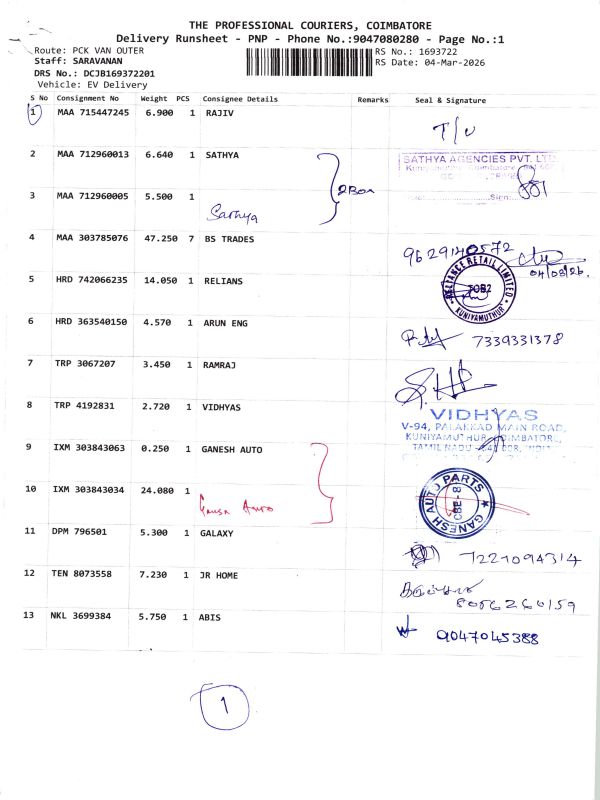 THE PROFESSIONAL COURIERS, COIMBATORE
Delivery Runsheet - PNP - Phone No.:9047080280 - Page No.:1
Route: PCK VAN OUTER
RS No.: 1693722
Staff: SARAVANAN
RS Date: 04-Mar-2026
DRS No.: DCJB169372201
Vehicle: EV Delivery
S No Consignment No Weight PCS Consignee Details Remarks Seal & Signature
1 MAA 715447245 6.900 1 RAJIV
T/U
2 MAA 712960013 6.640 1 SATHYA
SATHYA AGENCIES PVT. LTD
2Box
3 MAA 712960005 5.500 1
Sathya
4 MAA 303785076 47.250 7 BS TRADES
9629140572
04/03/26.
5 HRD 742066235 14.050 1 RELIANS
RELIANCE RETAIL LIMITED
KUNIYAMUTHUR
6 HRD 363540150 4.570 1 ARUN ENG
7339331378
7 TRP 3067207 3.450 1 RAMRAJ
8 TRP 4192831 2.720 1 VIDHYAS
VIDHYAS
V-94, PALAKKAD MAIN ROAD,
KUNIYAMUTHUR, COIMBATORE,
TAMIL NADU
9 IXM 303843063 0.250 1 GANESH AUTO
10 IXM 303843034 24.080 1
Auto
GANESH AUTO PARTS
CBE-8
11 DPM 796501 5.300 1 GALAXY
7221094314
12 TEN 8073558 7.230 1 JR HOME
8056260159
13 NKL 3699384 5.750 1 ABIS
9047045388
1